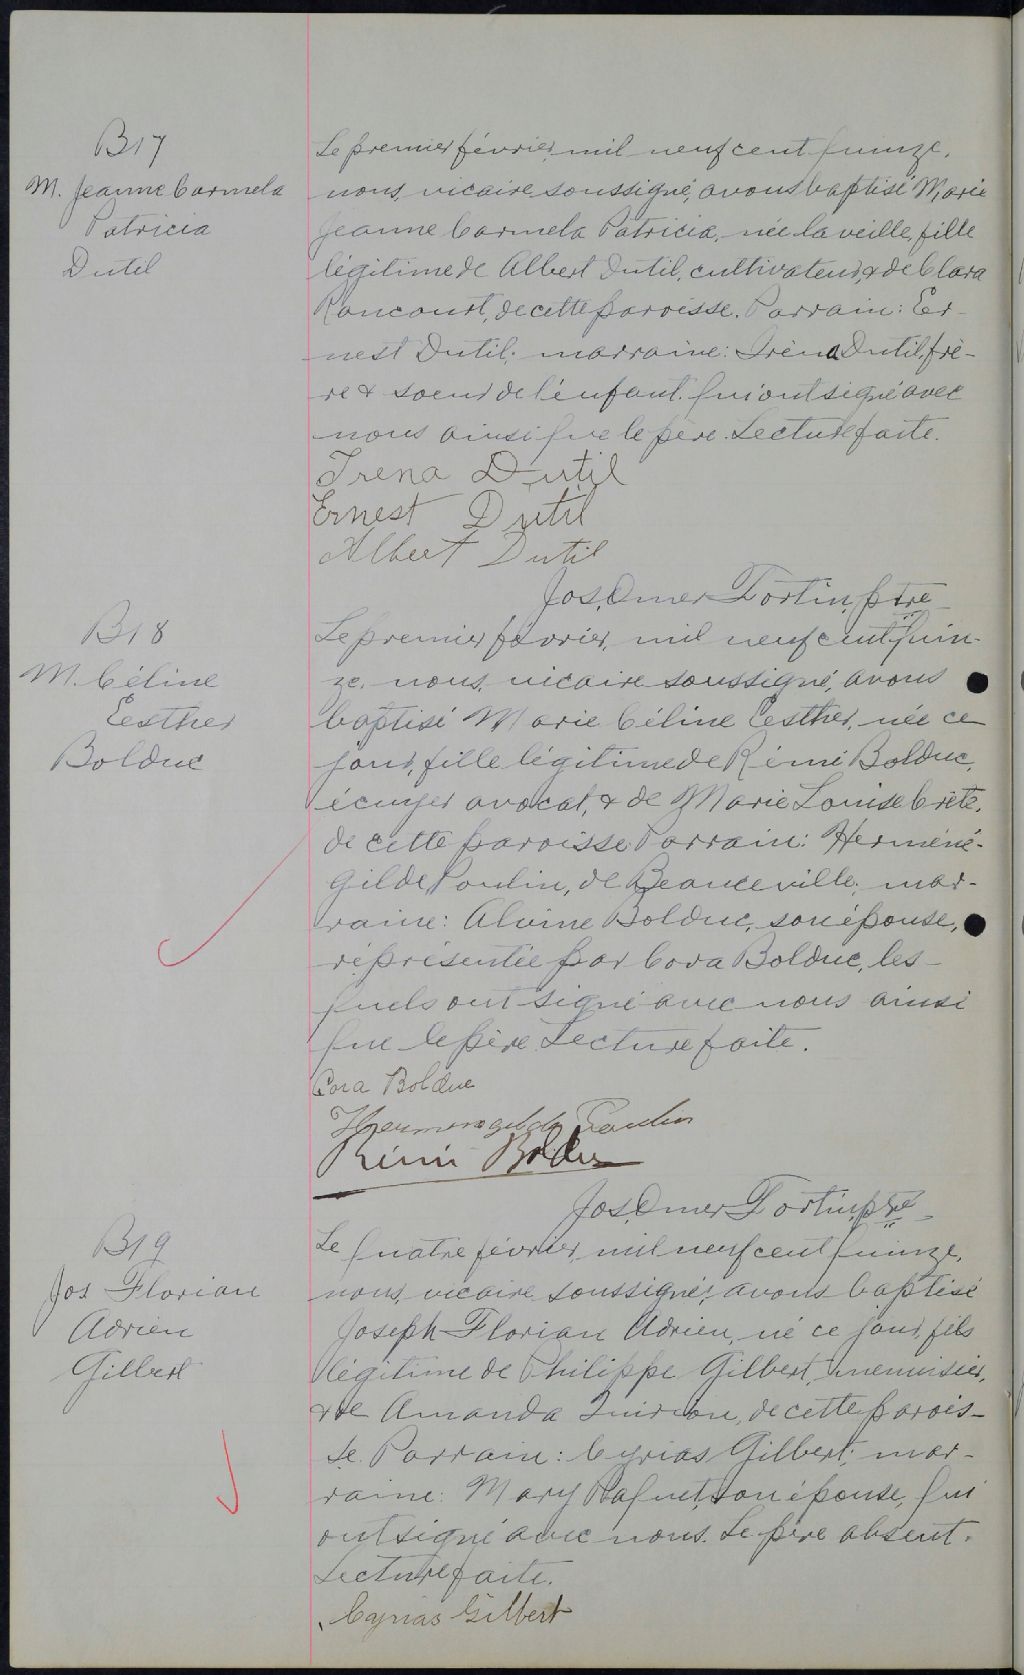 B17
M. Jeanne Carmela
Patricia
Dutil
Le premier février, mil neuf cent quinze,
nous, vicaire soussigné, avons baptisé Marie
Jeanne Carmela Patricia, née la veille, fille
légitime de Albert Dutil, cultivateur, & de Clara
Rancourt, de cette paroisse. Parrain: Er-
nest Dutil; marraine: Iréna Dutil, frè-
re & soeur de l'enfant. qui ont signé avec
nous ainsi que le père. Lecture faite.
Irena Dutil
Ernest Dutil
Albert Dutil
Jos. Omer Fortin, ptre
B18
M. Céline
Eesther
Bolduc
Le premier février, mil neuf cent quin-
ze, nous, vicaire soussigné, avons
baptisé Marie Céline Eesther, née ce
jour, fille légitime de Rémi Bolduc,
écuyer avocat, & de Marie Louise Crête,
de cette paroisse. Parrain: Herméné-
gilde Poulin, de Beauceville; mar-
raine: Alvine Bolduc, son épouse,
représentée par Cora Bolduc, les-
quels ont signé avec nous ainsi
que le père. Lecture faite.
Cora Bolduc
Hermenegilde Poulin
Rémi Bolduc
Jos. Omer Fortin, ptre
B19
Jos Florian
Adrien
Gilbert
Le quatre février, mil neuf cent quinze,
nous, vicaire soussigné, avons baptisé
Joseph Florian Adrien, né ce jour, fils
légitime de Philippe Gilbert, menuisier,
& de Amanda Quirion, de cette parois-
se. Parrain: Cyrias Gilbert; mar-
raine: Mary Paquet, son épouse, qui
ont signé avec nous. Le père absent.
Lecture faite.
Cyrias Gilbert